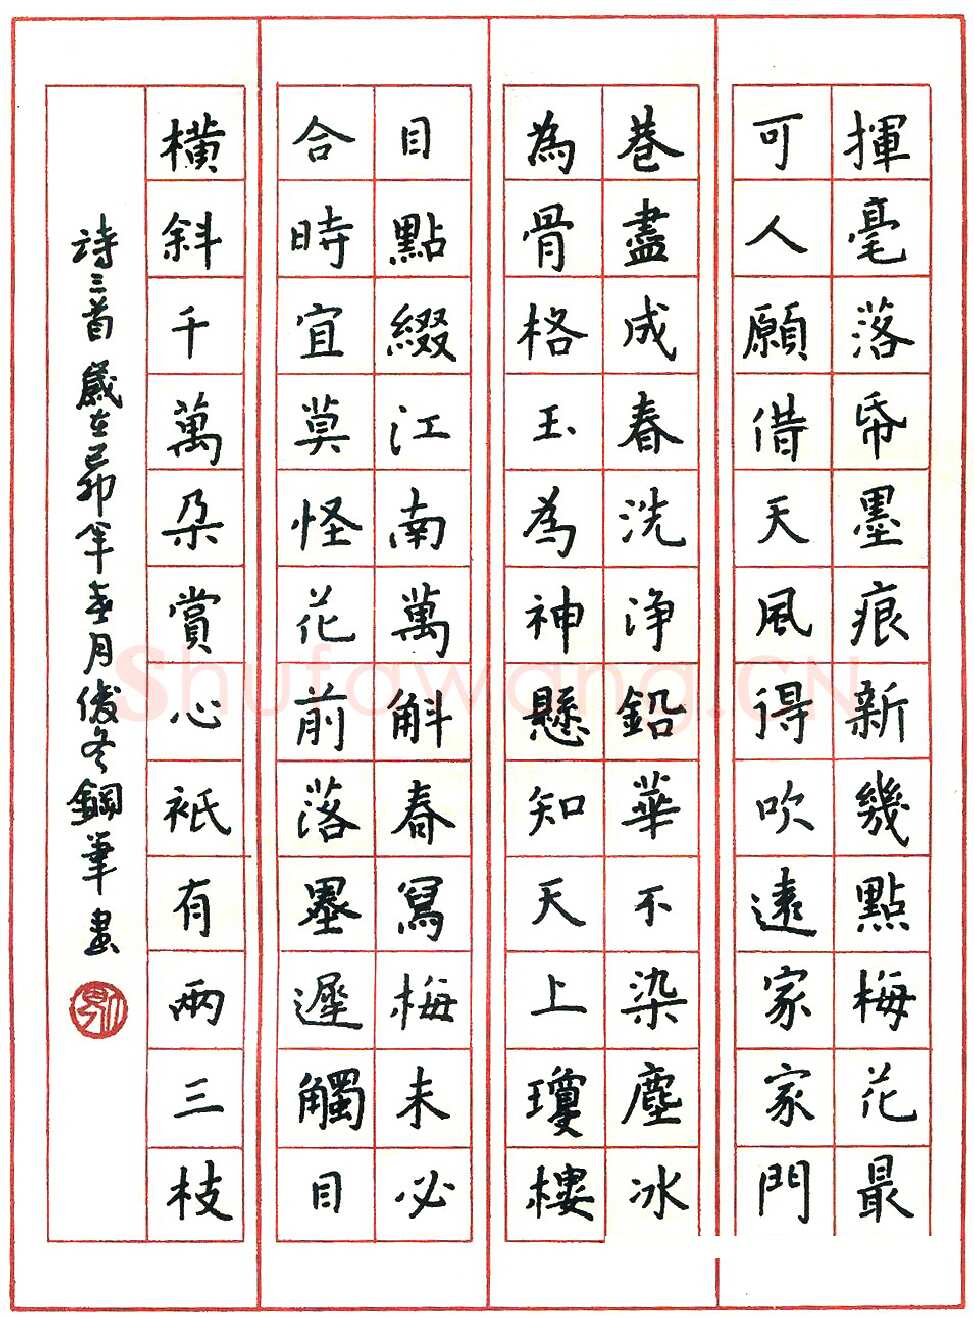 揮毫落帋墨痕新幾點梅花最
可人願借天風得吹遠家家門
巷盡成春洗淨鉛華不染塵冰
為骨格玉為神懸知天上瓊樓
目點綴江南萬斛春寫梅未必
合時宜莫怪花前落墨遲觸目
橫斜千萬朵賞心衹有兩三枝
詩三首 歲在己卯年春月俊冬鋼筆書
Shufawang.CN